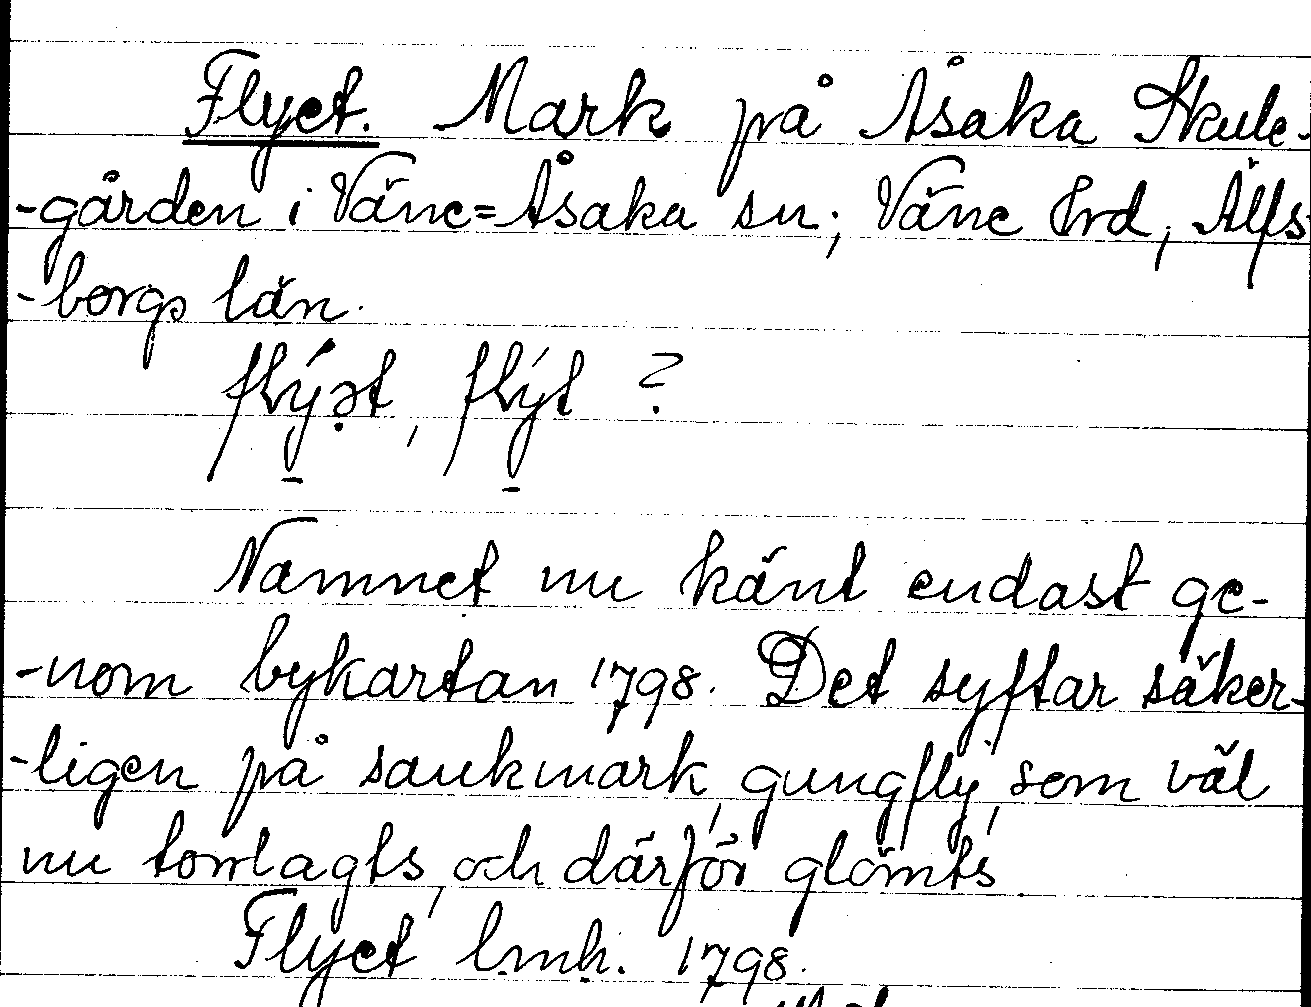 Flyet. Mark på Åsaka Skule-
-gården i Väne=Åsaka sn; Väne Hrd, Älfs
-borgs län.
flýət, flýt ?
Namnet nu känt endast ge-
-nom bykartan 1798. Det syftar säker-
-ligen på sankmark, gungfly, som väl
nu torrlagts, och därför glömts
Flyet lmh. 1798.